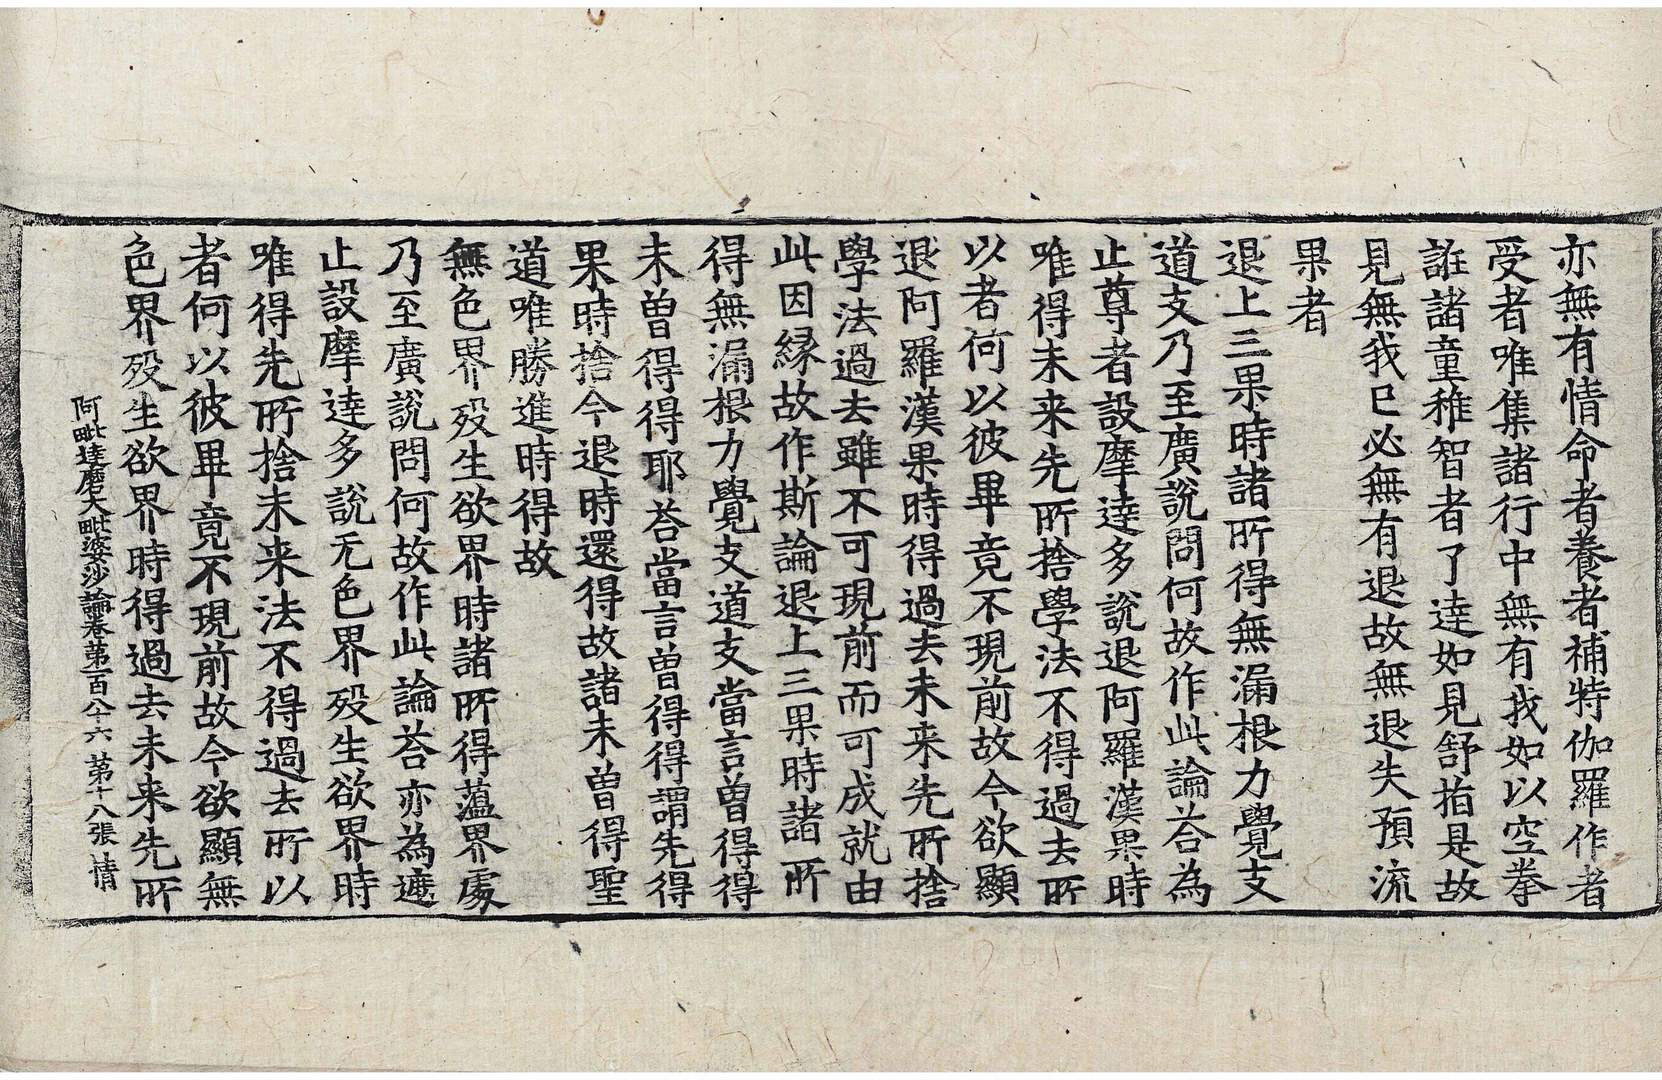 亦無有情命者養者補特伽羅作者
受者唯集諸行中無有我如以空拳
誑諸童稚智者了逹如見舒指是故
見無我已必無有退故無退失預流
果者
退上三果時諸所得無漏根力覺支
道支乃至廣說問何故作此論荅為
止尊者設摩逹多說退阿羅漢果時
唯得未来先所捨學法不得過去所
以者何以彼畢竟不現前故今欲顯
退阿羅漢果時得過去未来先所捨
學法過去雖不可現前而可成就由
此因緣故作斯論退上三果時諸所
得無漏根力覺支道支當言曾得得
未曾得得耶荅當言曾得得謂先得
果時捨今退時還得故諸未曾得聖
道唯勝進時得故
無色界殁生欲界時諸所得蘊界處
乃至廣說問何故作此論荅亦為遮
止設摩逹多說无色界殁生欲界時
唯得先所捨未来法不得過去所以
者何以彼畢竟不現前故今欲顯無
色界殁生欲界時得過去未来先所
阿毗逹磨大毗婆沙論卷第一百八十六 第十八張 情